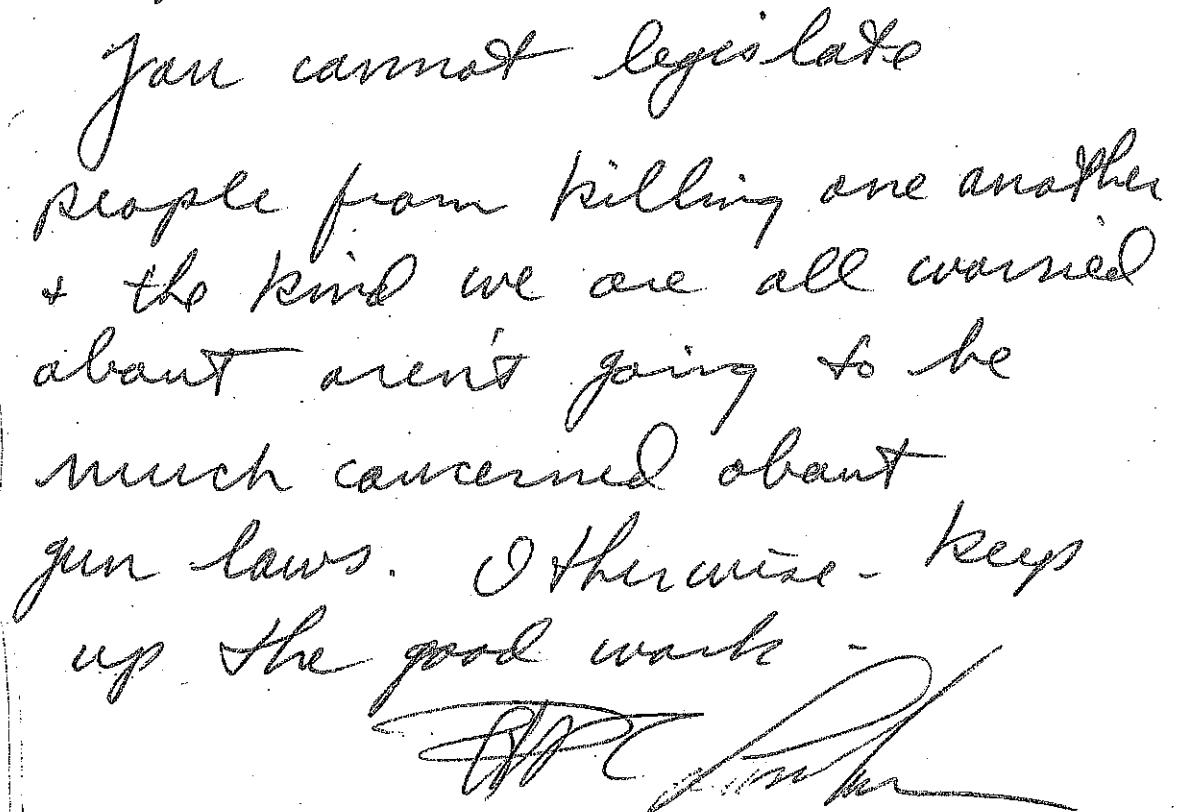 You cannot legislate
people from killing one another
+ the kind we are all worried
about aren't going to be
much concerned about
gun laws. Otherwise - keep
up the good work -